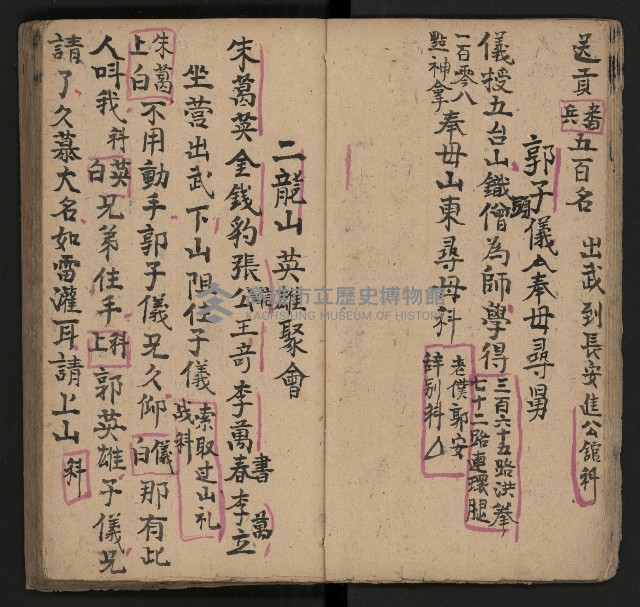 送貢番兵五百名　出武到長安進公舘科
郭子儀仝奉母尋舅
儀投五台山鐵頭僧為師學得三百六十五路洪拳七十二路連環腿
一百零八點神拿奉母山東尋母科老僕郭安辞别科△
二龍山英雄聚會
朱萬英金錢豹張公王奇李萬春李立
坐营出武下山阻住子儀索取过山礼戏科
朱萬上白不用動手郭子儀兄久仰儀白那有此
人叫我科英白兄弟住手科上郭英雄子儀兄
請了久慕大名如雪灌耳請上山科
書萬
高雄市立歷史博物館
KAOHSIUNG MUSEUM OF HISTORY